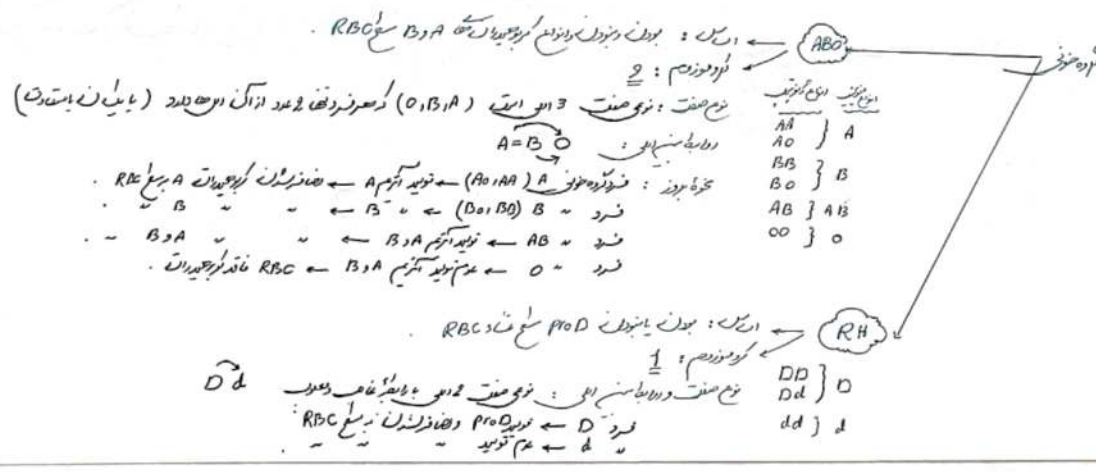 گروه خونی
ABO ← اساس : بودن و نبودن و انواع کربوهیدرات‌های A و B سطح RBC .
کروموزوم : 9
نوع صفت : نوعی صفت 3 اللی است (O،B،A) که هر فرد تنها 2 عدد از آن الل‌ها دارد (یا یکسان یا متفاوت)
رابطه بین اللی : A = B O
انواع ژنوتیپ انواع فنوتیپ
AA
AO } A
BB
BO } B
AB } AB
OO } O
نحوهٔ بروز : فرد گروه خونی A (AO،AA) ← تولید آنزیم A ← اضافه شدن کربوهیدرات A بر سطح RBC .
فرد " B (BO،BB) ← " B ← " " B " " .
فرد " AB ← تولید آنزیم A و B ← " " A و B " .
فرد " O ← عدم تولید آنزیم A و B ← RBC فاقد کربوهیدرات .
RH ← اساس : بودن یا نبودن pro D سطح غشاء RBC .
کروموزوم : 1
نوع صفت و رابطه بین اللی : نوعی صفت 2 اللی با رابطهٔ غالب و مغلوب D d
DD
Dd } D
dd } d
فرد D ← تولید pro D و اضافه شدن به سطح RBC
" d ← عدم تولید " " " .